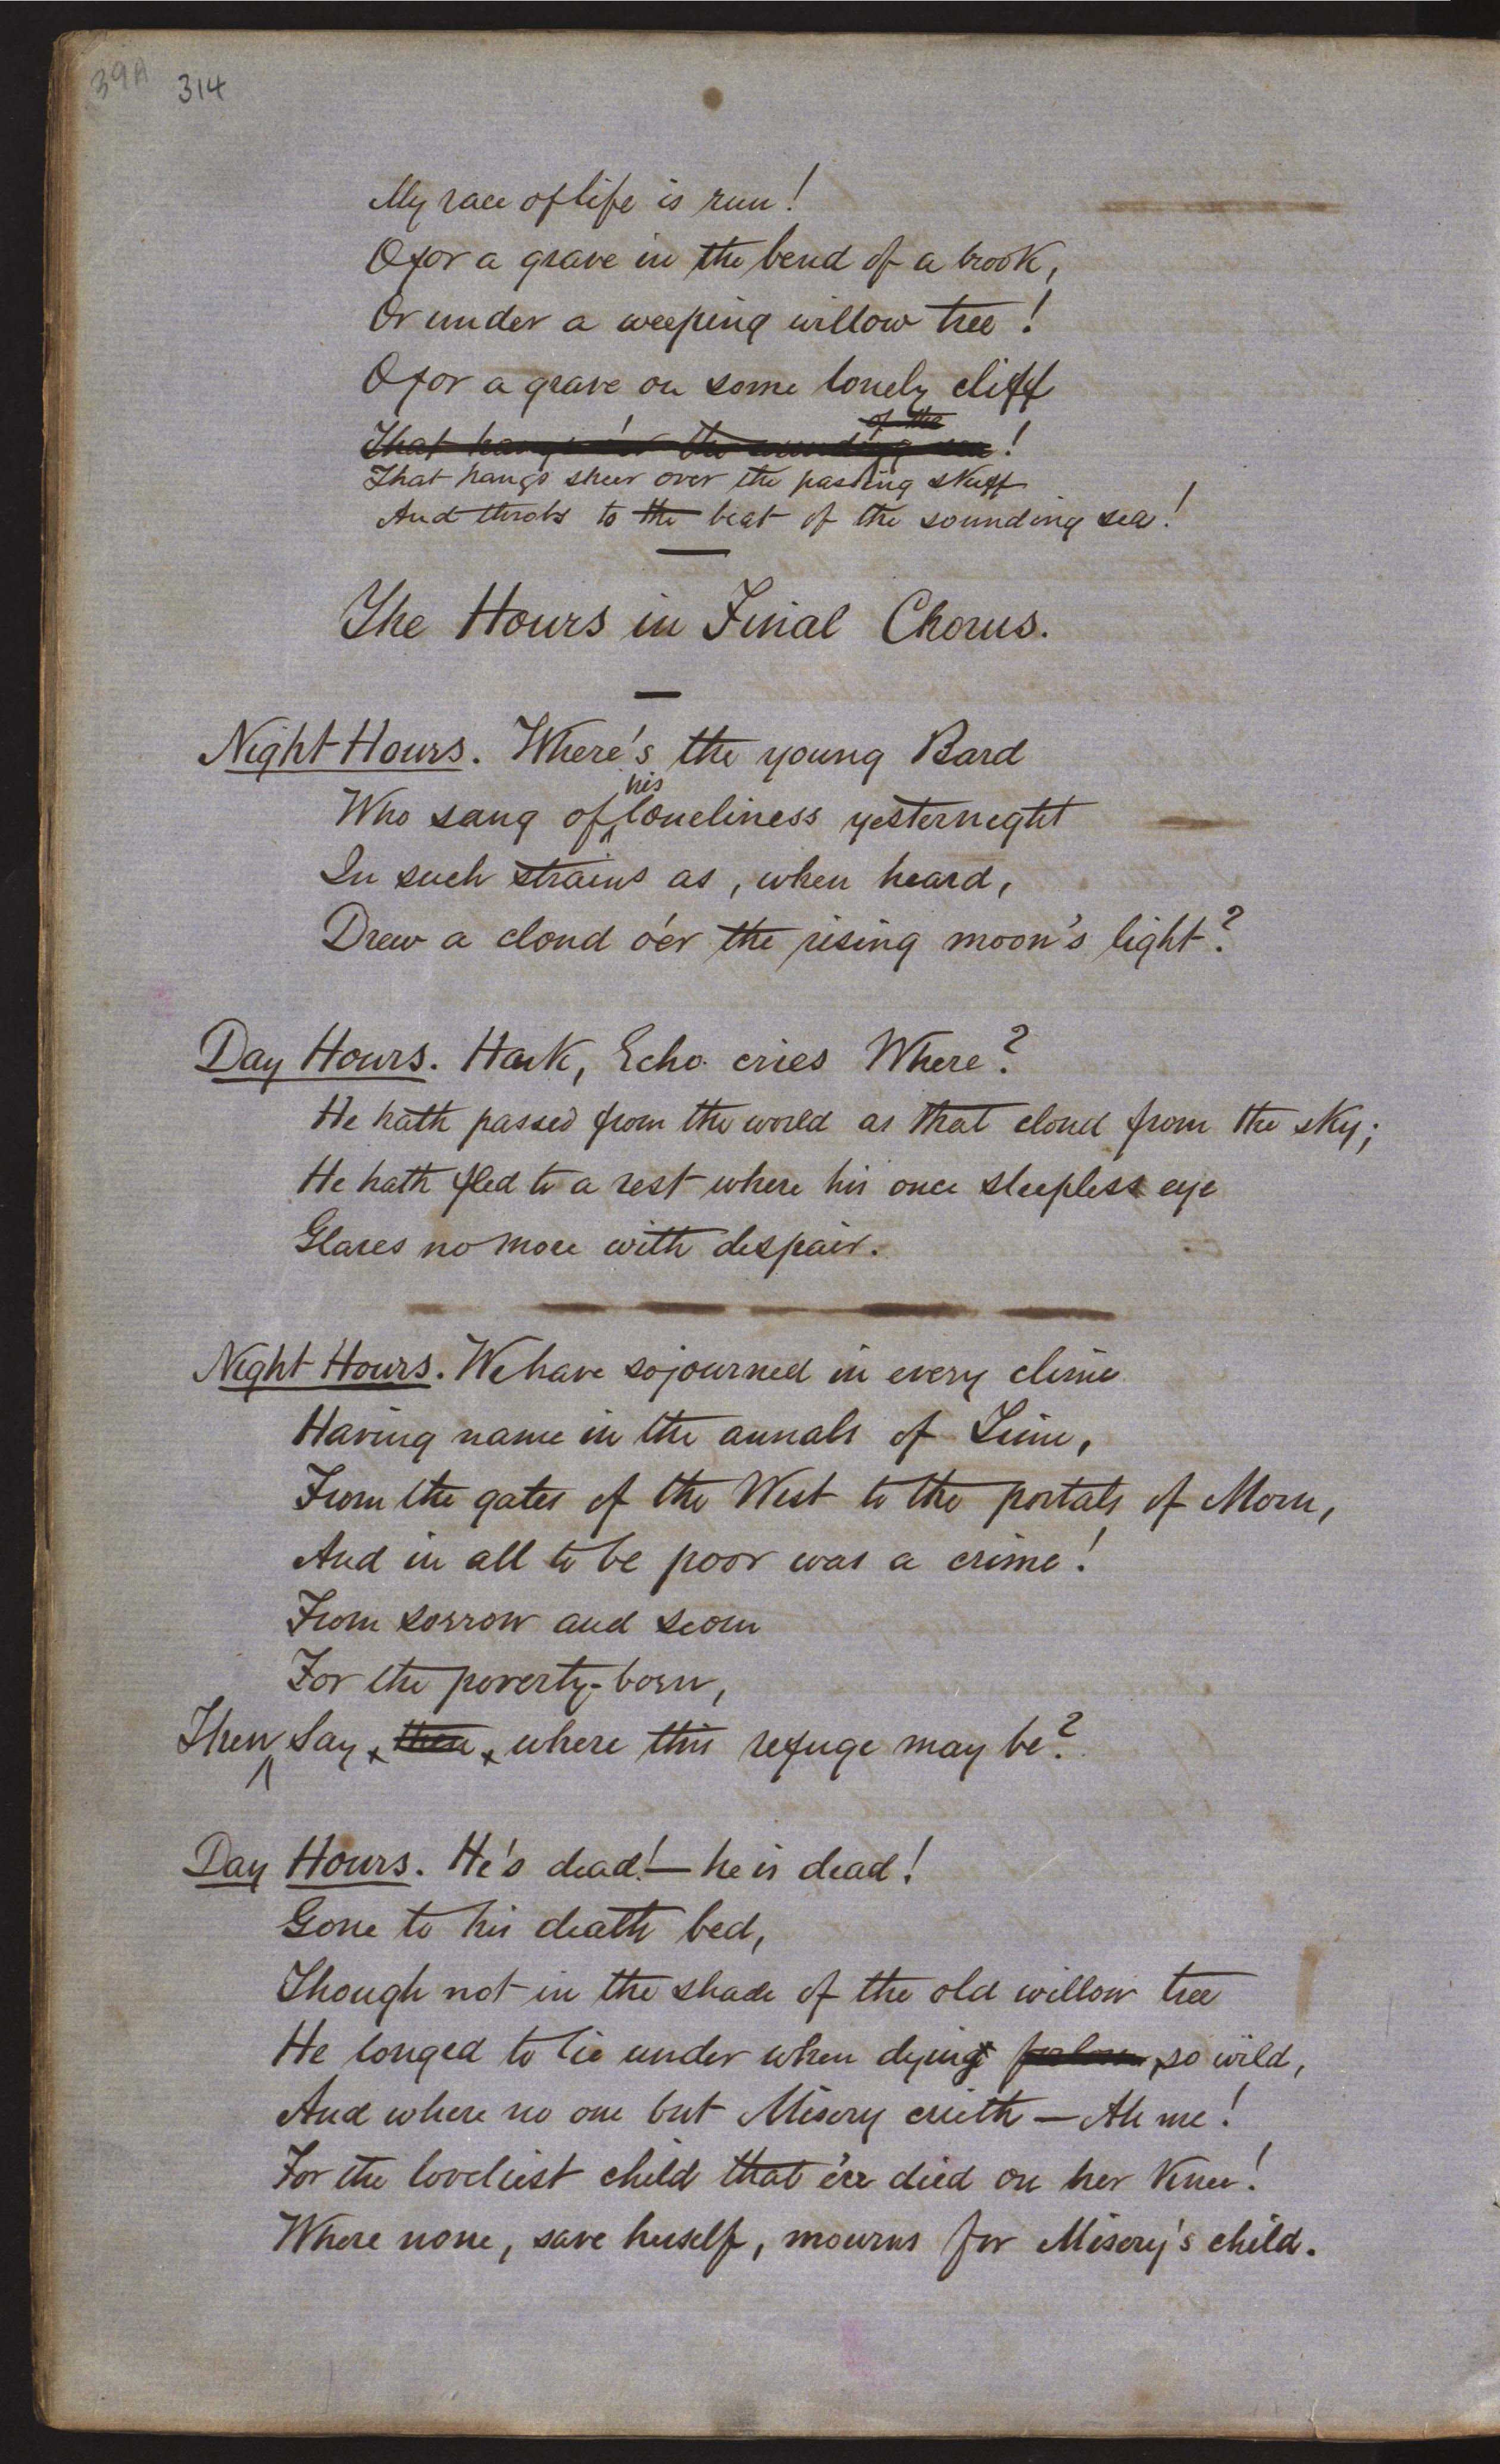 39A 314
My race of life is run!
O for a grave in the bend of a brook,
Or under a weeping willow tree!
O for a grave on some lonely cliff
of the
That hangs o'er the sounding sea!
That hangs sheer over the passing skiff
And throbs to the beat of the sounding sea!
The Hours in Final Chorus.
Night Hours. Where's the young Bard
his
Who sang of loneliness yesternight
In such strains as, when heard,
Drew a cloud o'er the rising moon's light?
Day Hours. Hark, Echo cries Where?
He hath passed from the world as that cloud from the sky;
He hath fled to a rest where his once sleepless eye
Glares no more with despair.
Night Hours. We have sojourned in every clime
Having name in the annals of Time,
From the gates of the West to the portals of Morn,
And in all to be poor was a crime!
From sorrow and scorn
For the poverty-born,
Then Say, then, where this refuge may be?
Day Hours. He's dead!—he is dead!
Gone to his death bed,
Though not in the shade of the old willow tree
He longed to lie under when dying forlorn, so wild,
And where no one but Misery crieth—Ah me!
For the loveliest child that e'er died on her knee!
Where none, save herself, mourns for Misery's child.